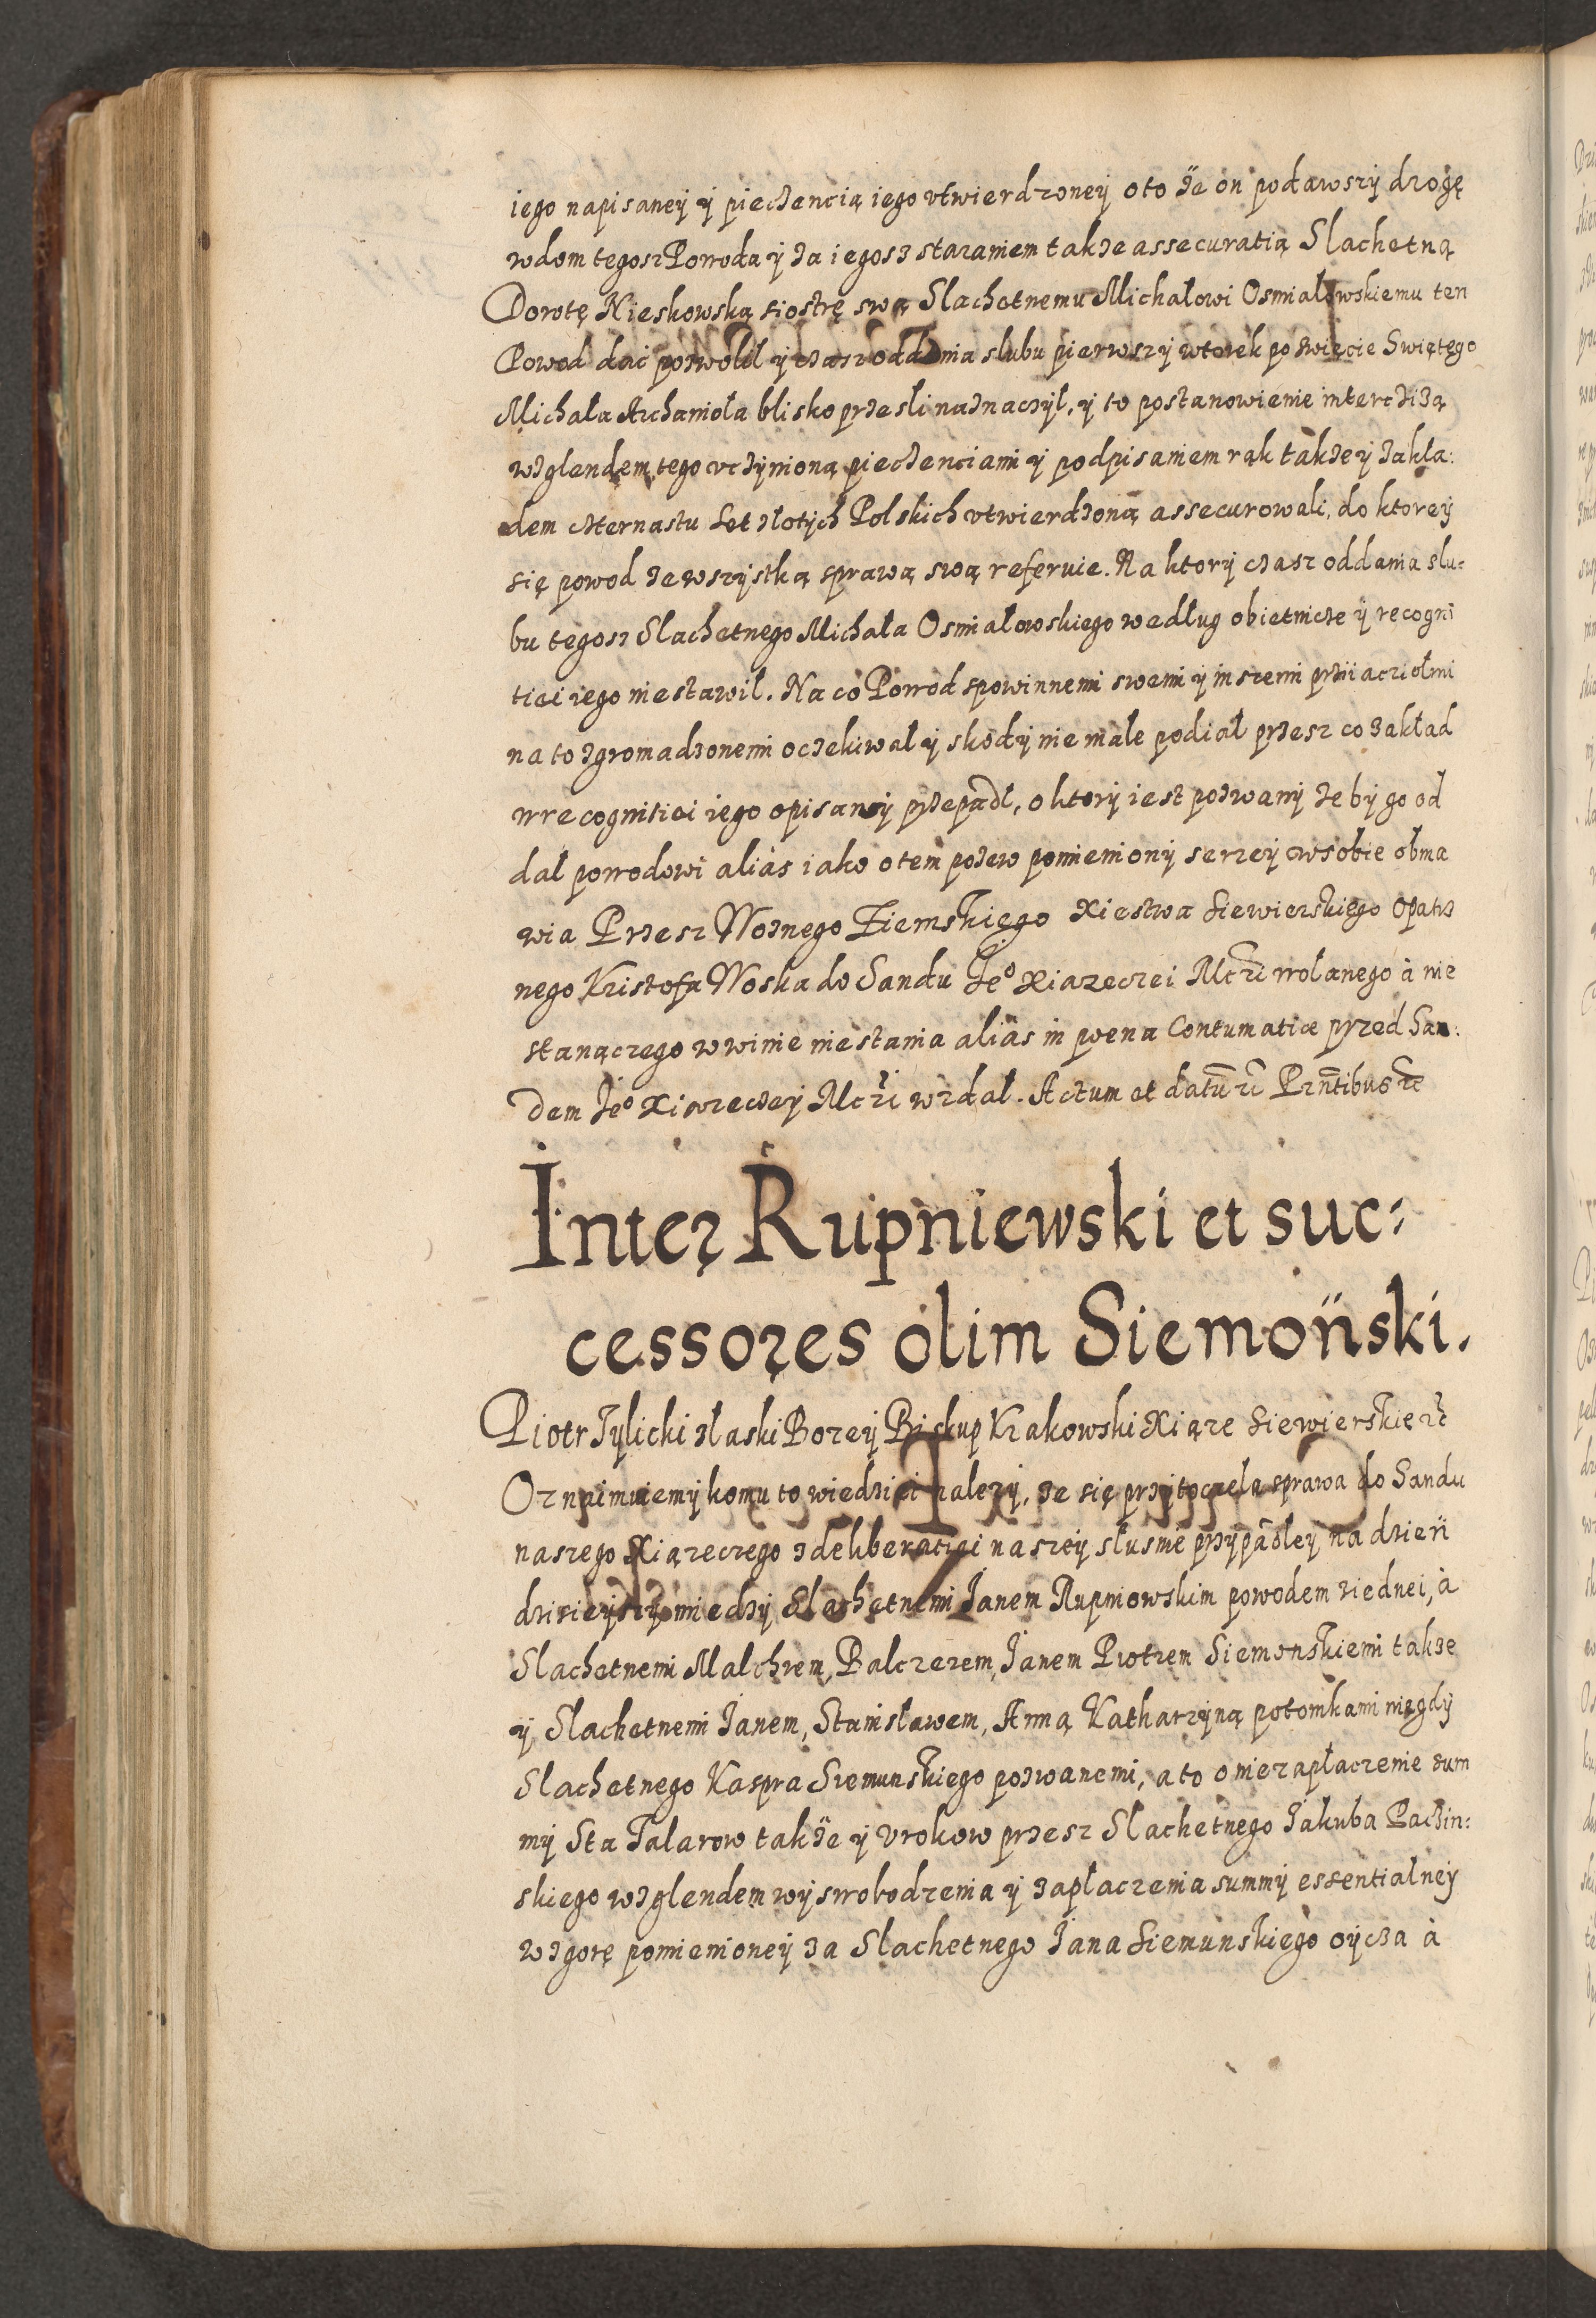 iego napisaney y pieczencią iego vtwierdzoney oto że on podawszy drogę
wdom tegosz Powoda y za iegosz staraniem takze assecuratią Slachetną
Dorotę Nieskowską siostrę swą Slachetnemu Michałowi Osmiałowskiemu ten
Powod dać pozwolil y czasz oddania slubu pierwszy wtorek po swięcie Swiętego
Michała Archanioła blisko przesli naznaczył, y to postanowienie intercizą
wzglendem tego vczynioną pieczenciami y podpisaniem rąk takze y zakła:
dem czternastu Set złotych Polskich vtwierdzoną assecurowali, do ktorey
się powod ze wszystką sprawą swą referuie. Na ktory czasz oddania slu:
bu tegosz Slachetnego Michała Osmiałowskiego według obietnicze y recogni
tiei iego nie stawil. Na co Powod spowinnemi swemi y inszemi prziiacziołmi
na to zgromadzonemi oczekiwał y skody nie małe podiał przesz co zakład
wrecognitiei iego opisany przepadl, o ktory iest pozwany ze by go od
dał powodowi aliàs iako o tem pozew pomieniony serzey wsobie obma
wia Przesz Woznego Ziemskiego Xiestwa Siewierskiego Opatrz
nego Kristofa Woska do Sandu Je⁰ Xiazeczei Mczi wolanego à nie
stanączego w winie niestania aliàs in poena Contumatiæ przed San:
dem Je⁰ Xiazeczey Mczi wzdal. Actum et datū zc Pzn̄tibus zc
Inter Rupniewski et suc:
cessores olim Siemoński.
Piotr Tylicki z łaski Bozey Biskup Krakowski Xiąze Siewierskie zc
Oznaimuiemy komu to wiedziei nalezy, ze się przytoczela sprawa do Sandu
naszego Xiązeczego z deliberatiei naszey słusnie przypadley na dzień
dzisieyszy miedzy Slachetnemi Janem Rupniowskim powodem ziednei, à
Slachetnemi Malchrem, Balczerem, Janem Piotrem Siemonskiemi takze
y Slachetnemi Janem, Stanisławem, Anną Katharzyną potomkami niegdy
Slachetnego Kaspra Siemunskiego pozwanemi, a to o niezapłaczenie sum
my Sta Talarow takze y Vrokow przesz Slachetnego Jakuba Paczin:
skiego wzglendem wyswobodzenia y zapłaczenia summy essentialney
wzgorę pomienioney za Slachetnego Jana Siemunskiego oycza à